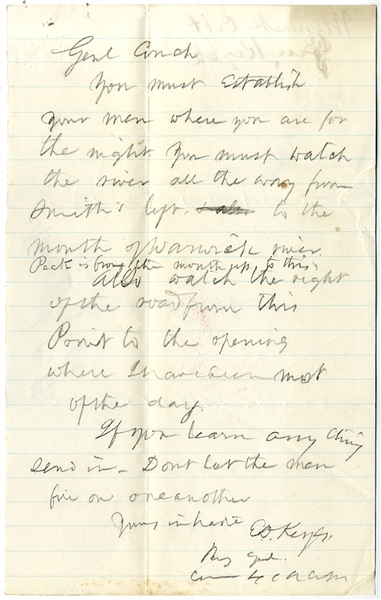 Genl Couch
You must Establish
your men where you are for
the night. You must watch
the river all the way from
Smith's left. to the
mouth of Warwick river.
Peck is from the mouth up to this.
Also watch the right
of the road from this
Point to the opening
where I have been most
of the day.
If you learn any thing
send in - Dont let the men
fire on one another
Yours in haste
E.D. Keyes.
Brig Genl.